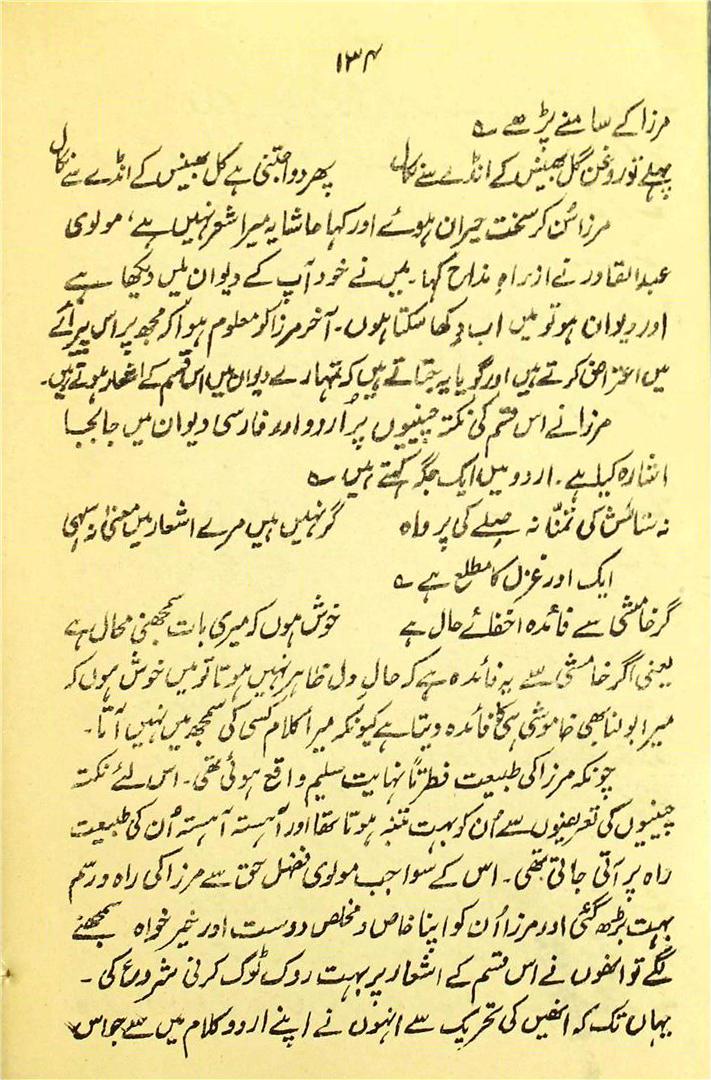 ۱۳۴
مرزا کے سامنے پڑھے ؎
پہلے تو روغن گل بھینس کے انڈے سے نکال پھر دوا جتنی ہے کل بھینس کے انڈے سے نکال
مرزا سُن کر سخت حیران ہوئے اور کہا حاشا یہ میرا شعر نہیں ہے، مولوی
عبدالقادر نے ازراہِ مذاح کہا۔ میں نے خود آپ کے دیوان میں دیکھا ہے
اور دیوان ہو تو میں اب دِکھا سکتا ہوں۔ آخر مرزا کو معلوم ہوا کہ مجھ پر اس پیرائے
میں اعتراض کرتے ہیں اور گویا یہ جتاتے ہیں کہ تمہارے دیوان میں اس قسم کے اشعار ہوتے ہیں۔
مرزا نے اس قسم کی نکتہ چینیوں پر اُردو اور فارسی دیوان میں جا بجا
اشارہ کیا ہے۔ اردو میں ایک جگہ کہتے ہیں ؎
نہ ستائش کی تمنّا نہ صِلے کی پرواہ گر نہیں ہیں مرے اشعار میں معنی نہ سہی
ایک اور غزل کا مطلع ہے ؎
گر خامشی سے فائدہ اخفائے حال ہے خوش ہوں کہ میری بات سمجھنی محال ہے
یعنی اگر خامشی سے یہ فائدہ ہے کہ حالِ دل ظاہر نہیں ہوتا تو میں خوش ہوں کہ
میرا بولنا بھی خاموشی ہی کا فائدہ دیتا ہے کیونکہ میرا کلام کسی کی سمجھ میں نہیں آتا۔
چونکہ مرزا کی طبیعت فطرتاً نہایت سلیم واقع ہوئی تھی۔ اس لئے نکتہ
چینیوں کی تعریضوں سے اُن کو بہت تنبّہ ہوتا تھا اور آہستہ آہستہ اُن کی طبیعت
راہ پر آتی جاتی تھی۔ اس کے سوا جب مولوی فضل حق سے مرزا کی راہ و رسم
بہت بڑھ گئی اور مرزا اُن کو اپنا خاص و مخلص دوست اور خیر خواہ سمجھنے
لگے تو انھوں نے اس قسم کے اشعار پر بہت روک ٹوک کرنی شروع کی۔
یہاں تک کہ انھیں کی تحریک سے انہوں نے اپنے اردو کلام میں سے جو اس